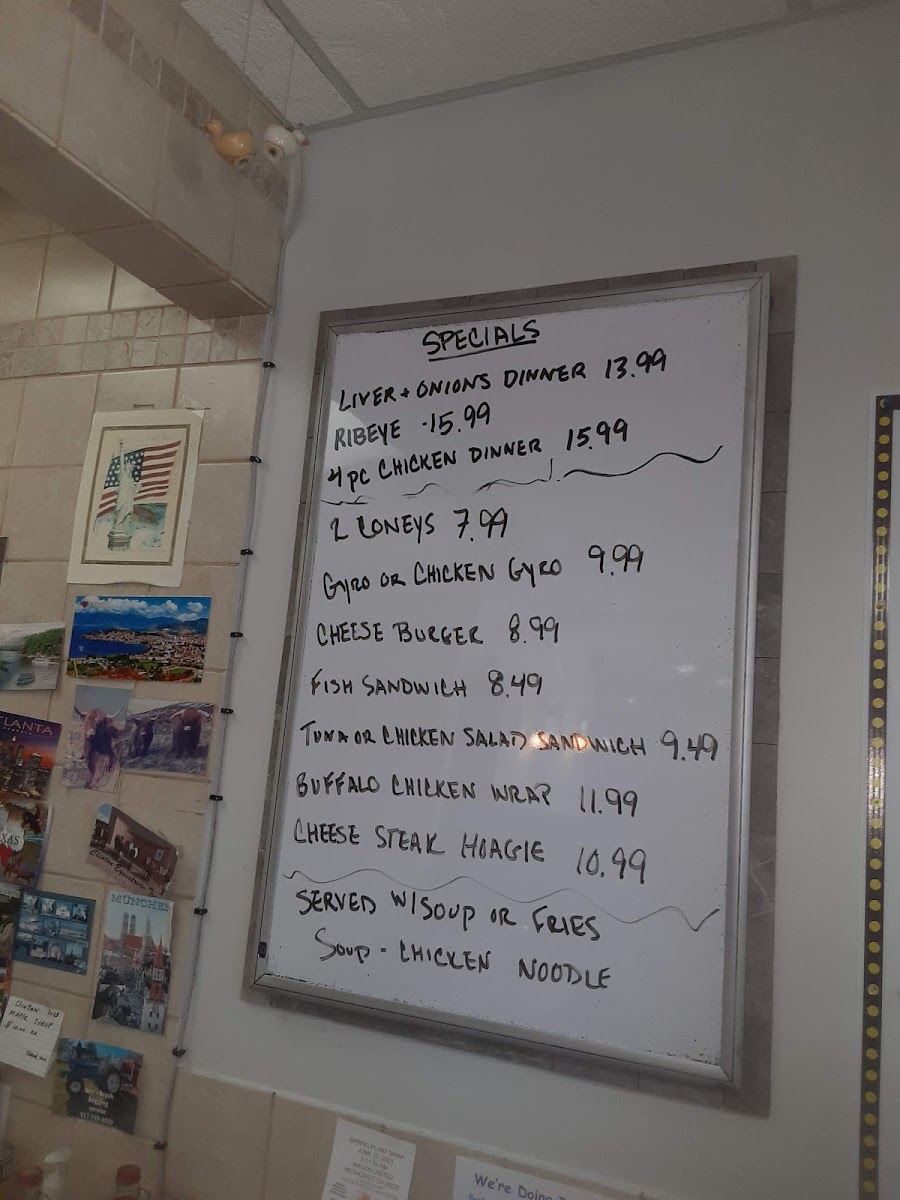 SPECIALS
LIVER + ONIONS DINNER 13.99
RIBEYE -15.99
4 PC CHICKEN DINNER 15.99
2 CONEYS 7.99
GYRO OR CHICKEN GYRO 9.99
CHEESE BURGER 8.99
FISH SANDWICH 8.49
TUNA OR CHICKEN SALAD SANDWICH 9.49
BUFFALO CHICKEN WRAP 11.99
CHEESE STEAK HOAGIE 10.99
SERVED W/SOUP OR FRIES
SOUP - CHICKEN NOODLE
TLANTA
XAS
MÜNCHEN
MAPLE SYRUP
SPRING PLANT SWAP
METHODIST CHURCH
We're Doing